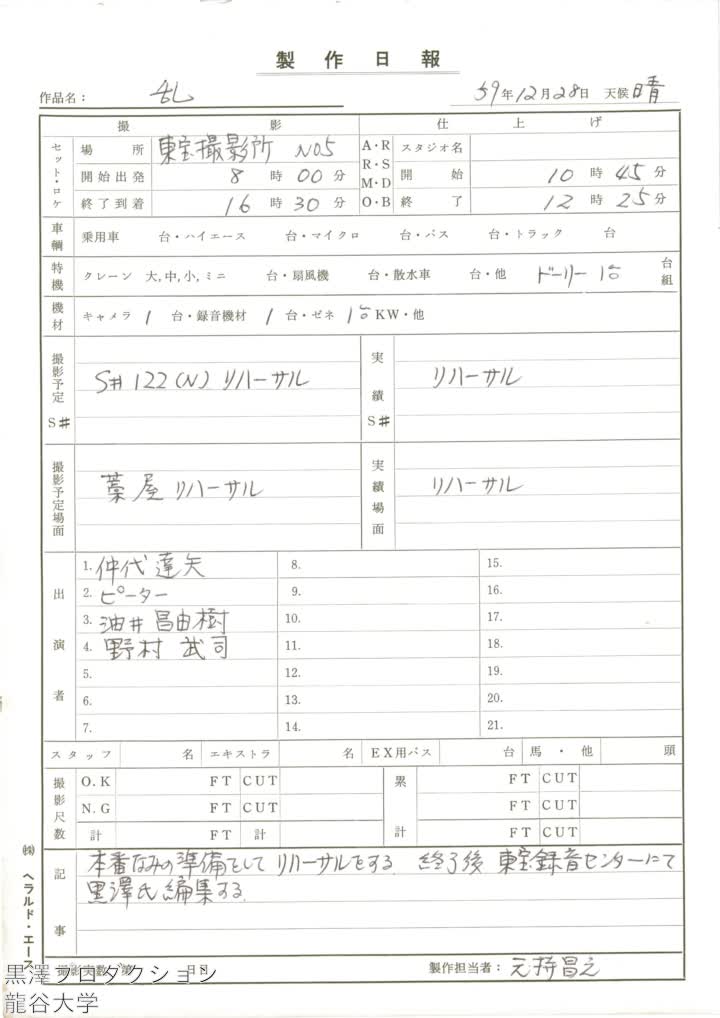 製作日報
作品名: 乱 59年12月28日 天候 晴
撮影 仕上げ
セット・ロケ 場所 東宝撮影所 No5 A・R スタジオ名
開始出発 8時00分 R・S M・D 開始 10時45分
終了到着 16時30分 O・B 終了 12時25分
車輌 乗用車 台・ハイエース 台・マイクロ 台・バス 台・トラック 台
特機 クレーン 大,中,小,ミニ 台・扇風機 台・散水車 台・他 ドーリー 1台 台組
機材 キャメラ 1 台・録音機材 1 台・ゼネ 1台 KW・他
撮影予定 S# S#122(N) リハーサル 実績 S# リハーサル
撮影予定場面 藁屋 リハーサル 実績場面 リハーサル
出演者
1. 仲代達矢 8. 15.
2. ピーター 9. 16.
3. 油井昌由樹 10. 17.
4. 野村武司 11. 18.
5. 12. 19.
6. 13. 20.
7. 14. 21.
スタッフ 名 エキストラ 名 EX用バス 台 馬・他 頭
撮影尺数 O.K FT CUT 累計 FT CUT
N.G FT CUT FT CUT
計 FT 計 FT CUT
記事 本番なみの準備をして リハーサルをする 終了後 東宝録音センターにて
黒澤氏編集する
撮影実数 第 日目 製作担当者: 元持昌之
㈱ ヘラルド・エース
黒澤プロダクション
龍谷大学